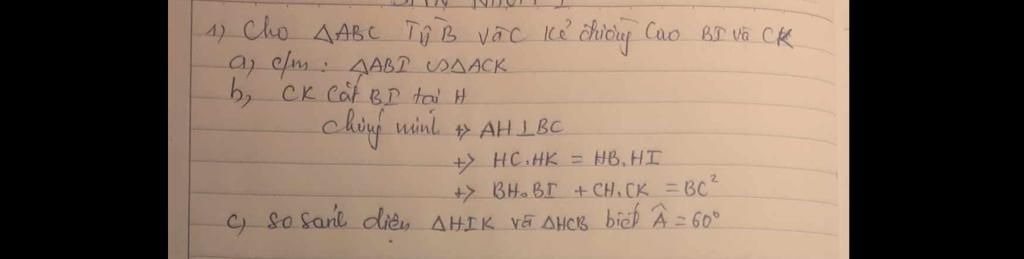 1) Cho △ABC Từ B và C kẻ đường cao BI và CK
a) c/m : △ABI ∽ △ACK
b, CK cắt BI tại H
chứng minh +> AH⊥BC
+> HC.HK = HB.HI
+> BH.BI + CH.CK = BC²
c) so sánh diện △HIK và △HCB biết Â = 60°